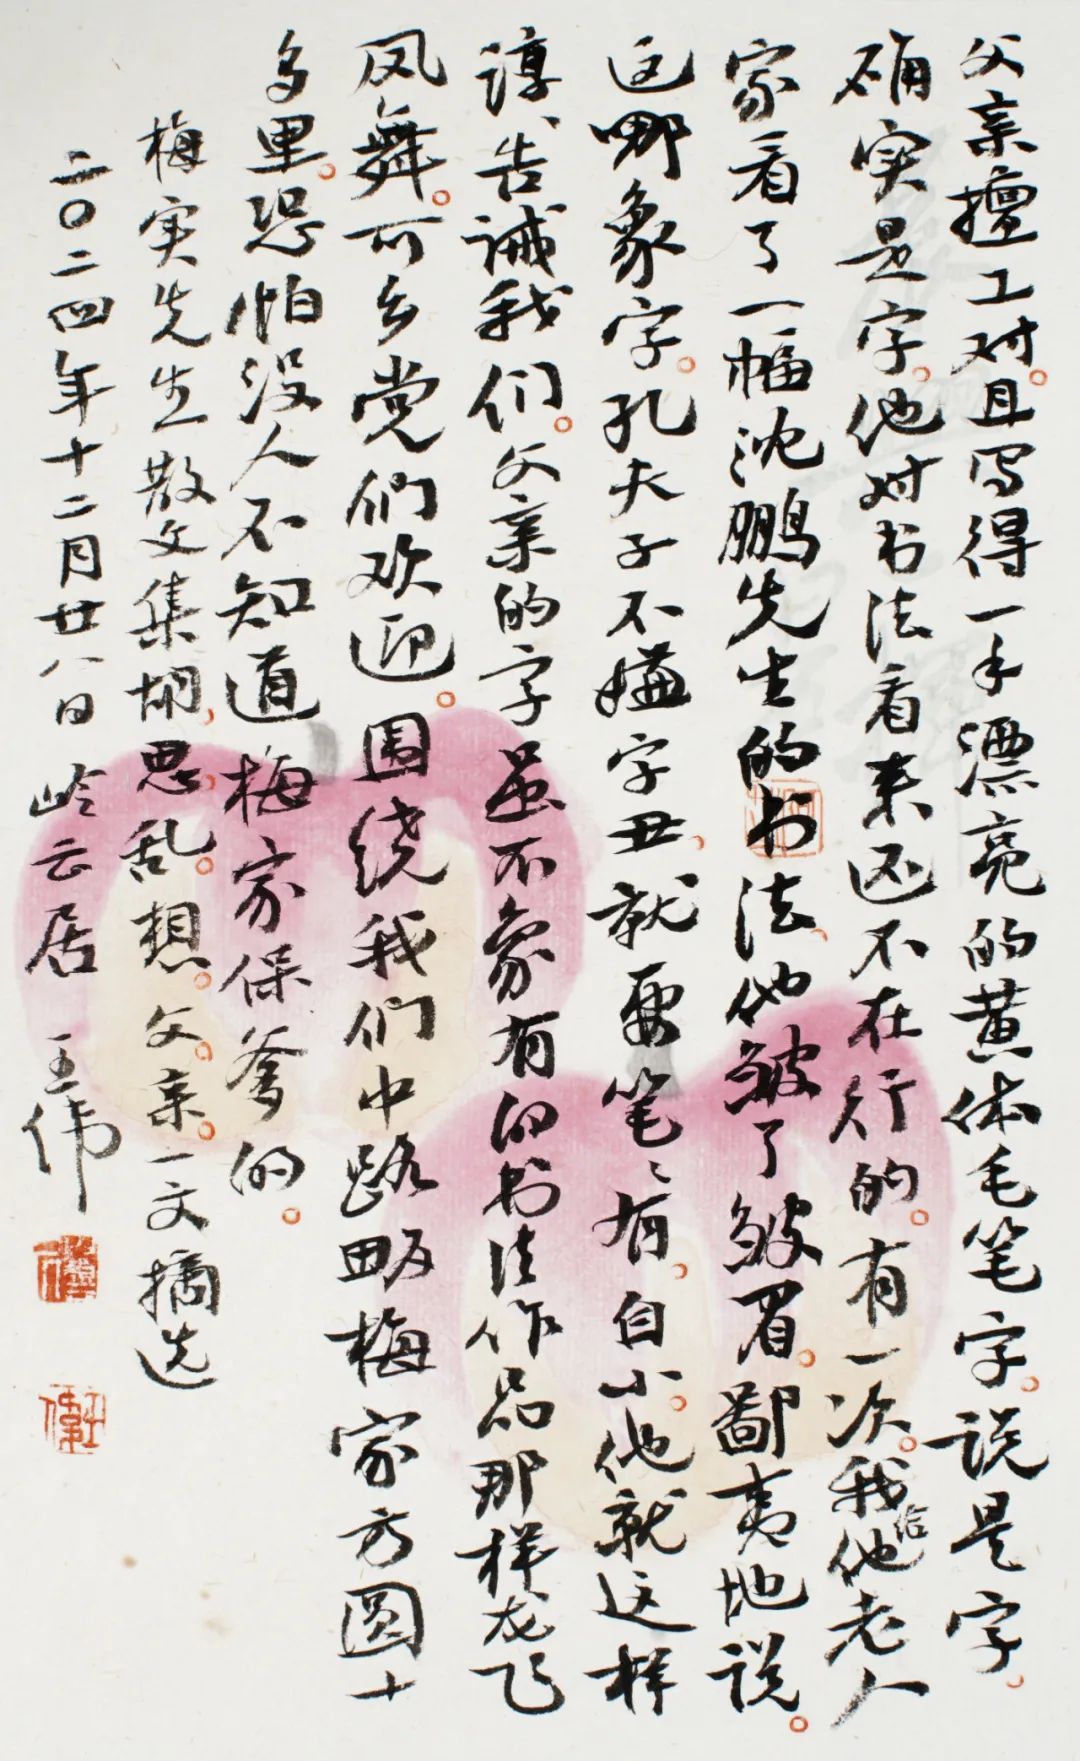 父亲擅工对。且写得一手漂亮的黄体毛笔字。说是字、
确实是字。他对书法看来还不在行的。有一次。我给他老人
家看了一幅沈鹏先生的书法、他皱了皱眉。鄙夷地说。
这哪象字。孔夫子不嫌字丑、就要笔笔有、自小。他就这样
谆、告诫我们。父亲的字虽不象有的书法作品那样龙飞
凤舞。可乡党们欢迎。围绕我们中路畈梅家方圆十
多里。恐怕没人不知道梅家保爹的。
梅实先生散文集胡、思、乱。想。父。亲。一文摘选
二〇二四年十二月廿八日 岭云居 王伟